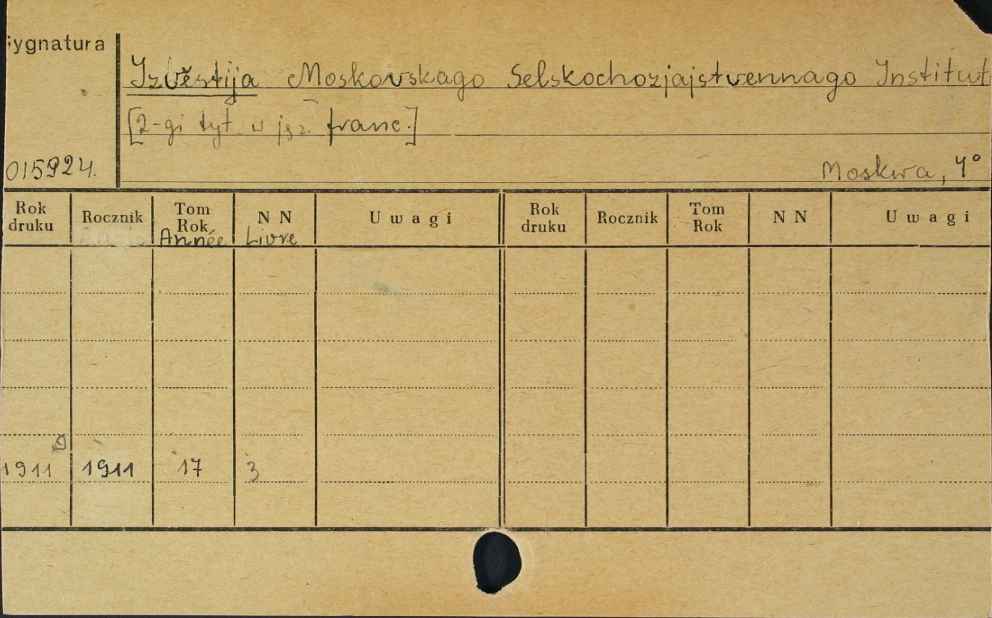 Sygnatura
Izvěstija Moskovskago Selskochozjajstvennago Institut
[2-gi tyt. w jęz. franc.]
015924.
Moskwa, 4°
Rok druku Rocznik Tom Rok NN Uwagi Rok druku Rocznik Tom Rok NN Uwagi
Année Livre
1911 1911 17 3